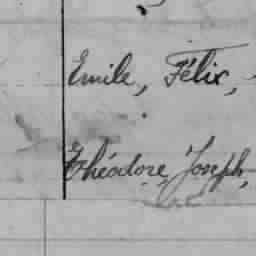 Emile, Félix,
Théodore, Joseph,